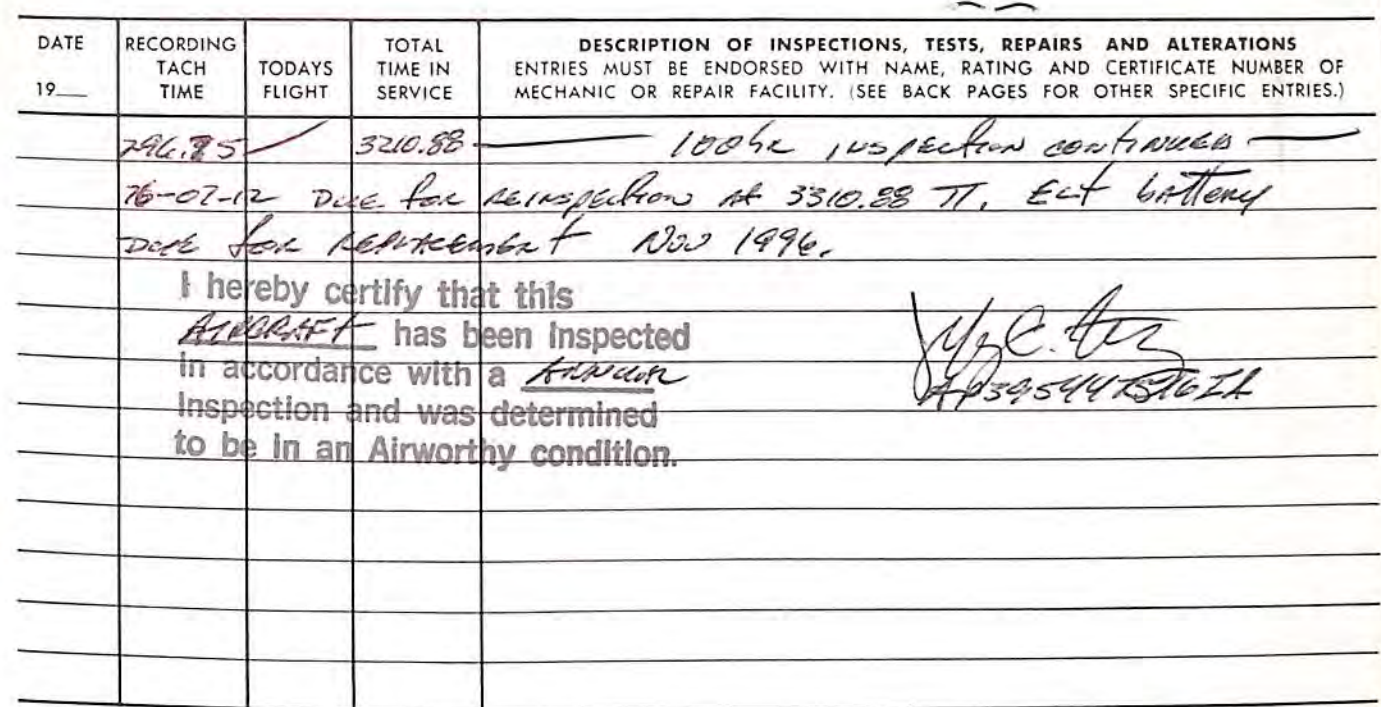 DATE RECORDING TOTAL DESCRIPTION OF INSPECTIONS, TESTS, REPAIRS AND ALTERATIONS
TACH TODAYS TIME IN ENTRIES MUST BE ENDORSED WITH NAME, RATING AND CERTIFICATE NUMBER OF
19__ TIME FLIGHT SERVICE MECHANIC OR REPAIR FACILITY. (SEE BACK PAGES FOR OTHER SPECIFIC ENTRIES.)
796.85 3210.88 100hr inspection continued
76-07-12 Due for reinspection at 3310.88 TT. Elt battery
Due for replacement Nov 1996.
I hereby certify that this
AIRCRAFT has been Inspected
in accordance with a Annual
Inspection and was determined
to be in an Airworthy condition.